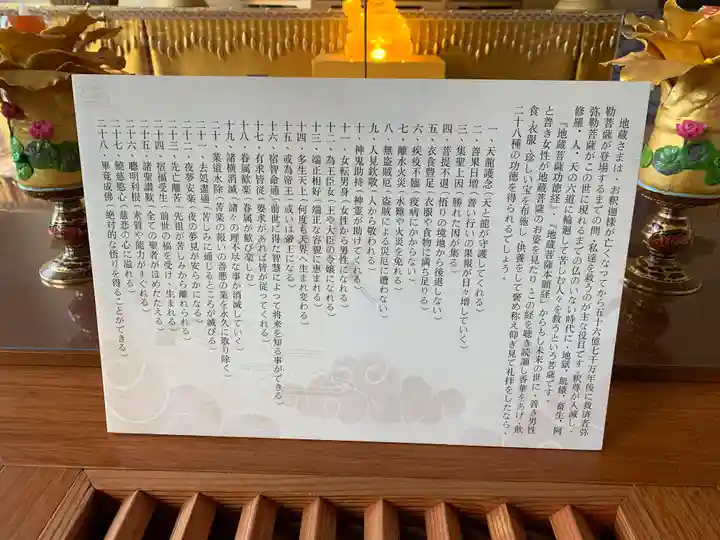 地蔵さまは、お釈迦様が亡くなってから五十六億七千万年後に救済者弥
勒菩薩が登場するまでの間、私達を救うのが主な役目です。釈尊が入滅し、
弥勒菩薩がこの世に現れるまでの仏のいない時代に、地獄、飢餓、畜生、阿
修羅、人、天の六道に輪廻して苦しむ人々を救うという菩薩です。
『地蔵菩薩功徳経』、『地蔵菩薩本願経』からもし未来の世に、善き男性
と善き女性が地蔵菩薩のお姿を見たり、この経を聴き読誦し香華をあげ、飲
食、衣服、珍しい宝を布施し、供養をして褒め称え仰ぎ見て礼拝をしたなら、
二十八種の功徳を得られるでしょう。
一、天龍護念（天と龍が守護してくれる）
二、善果日増（善い行いの果報が日々増していく）
三、集聖上因（勝れた因が集る）
四、菩提不退（悟りの境地から後退しない）
五、衣食豊足（衣服や食物に満ち足りる）
六、疾疫不臨（疫病にかからない）
七、離水火災（水難や火災を免れる）
八、無盗賊厄（盗賊による災厄に遭わない）
九、人見欽敬（人から敬われる）
十、神鬼助持（神霊が助けてくれる）
十一、女転男身（女性から男性になれる）
十二、為王臣女（王や大臣の令嬢になれる）
十三、端正相好（端正な容貌に恵まれる）
十四、多生天上（何度も天界へ生まれ変わる）
十五、或為帝王（或いは帝王になる）
十六、宿智命通（前世に得た智慧によって将来を知る事ができる）
十七、有求皆従（要求があれば皆が従ってくれる）
十八、眷属歓楽（眷属が歓び楽しむ）
十九、諸横消滅（諸々の理不尽な事が消滅していく）
二十、業道永除（苦楽の報いの善悪の業を永久に取り除く）
二十一、去処盡通（苦しみに通じるところが滅びる）
二十二、夜夢安楽（夜の夢見が安らかになる）
二十三、先亡離苦（先祖が苦しみから離れられる）
二十四、宿福受生（前世の福を受け、生まれる）
二十五、諸聖讃歎（全ての聖者がほめたたえる）
二十六、聰明利根（素質や能力がすぐれる）
二十七、饒慈愍心（慈悲の心に溢れる）
二十八、畢竟成佛（絶対的な悟りを得ることができる）